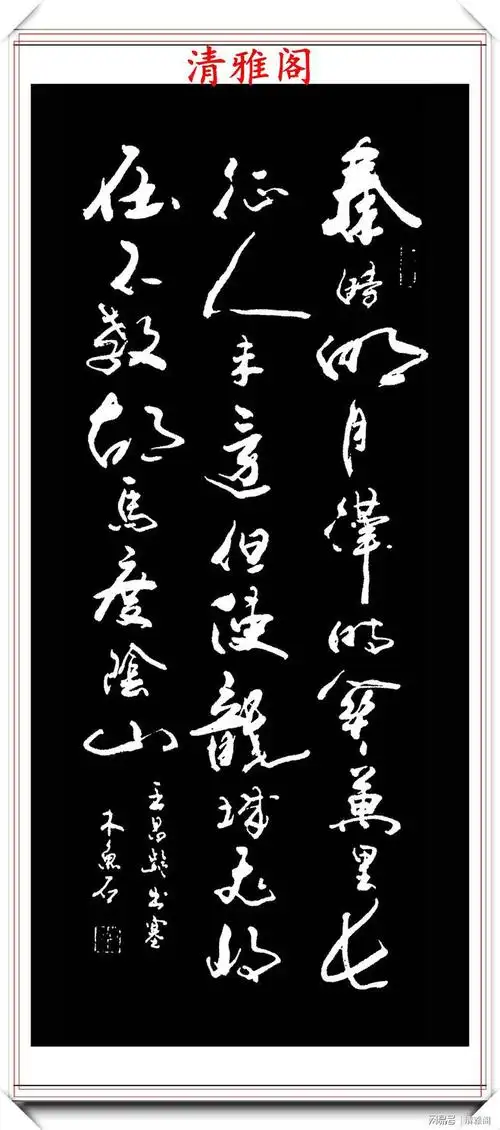 清雅阁
秦時明月漢時關萬里長
征人未還但使龍城飛将
在不教胡馬度陰山
王昌齡出塞
木魚石
网易号 | 清雅阁